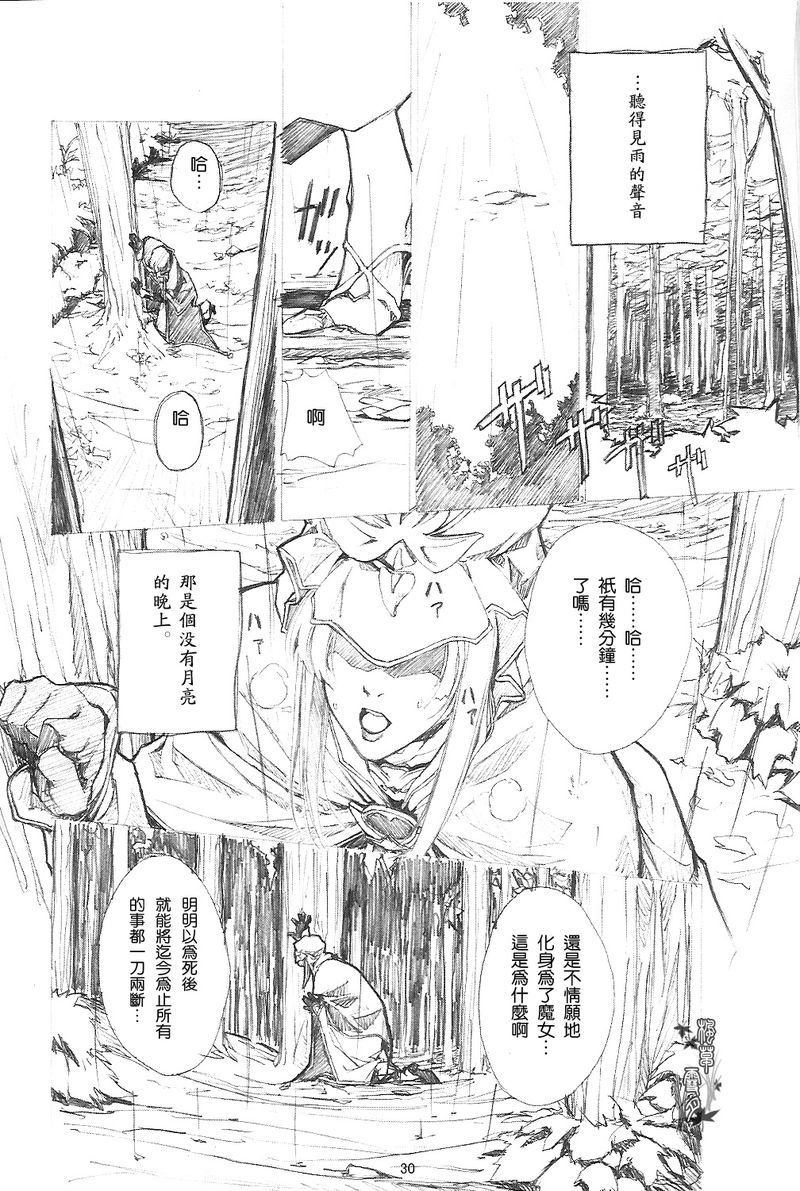 …聽得見雨的聲音
ザザ
ザザザ
啊
哈…
哈
哈……哈……
衹有幾分鐘……
了嗎……
ハァ
ハァ
ハァ
那是個没有月亮
的晚上。
還是不情願地
化身爲了魔女…
這是爲什麼啊
明明以爲死後
就能將迄今爲止所有
的事都一刀兩斷…
30